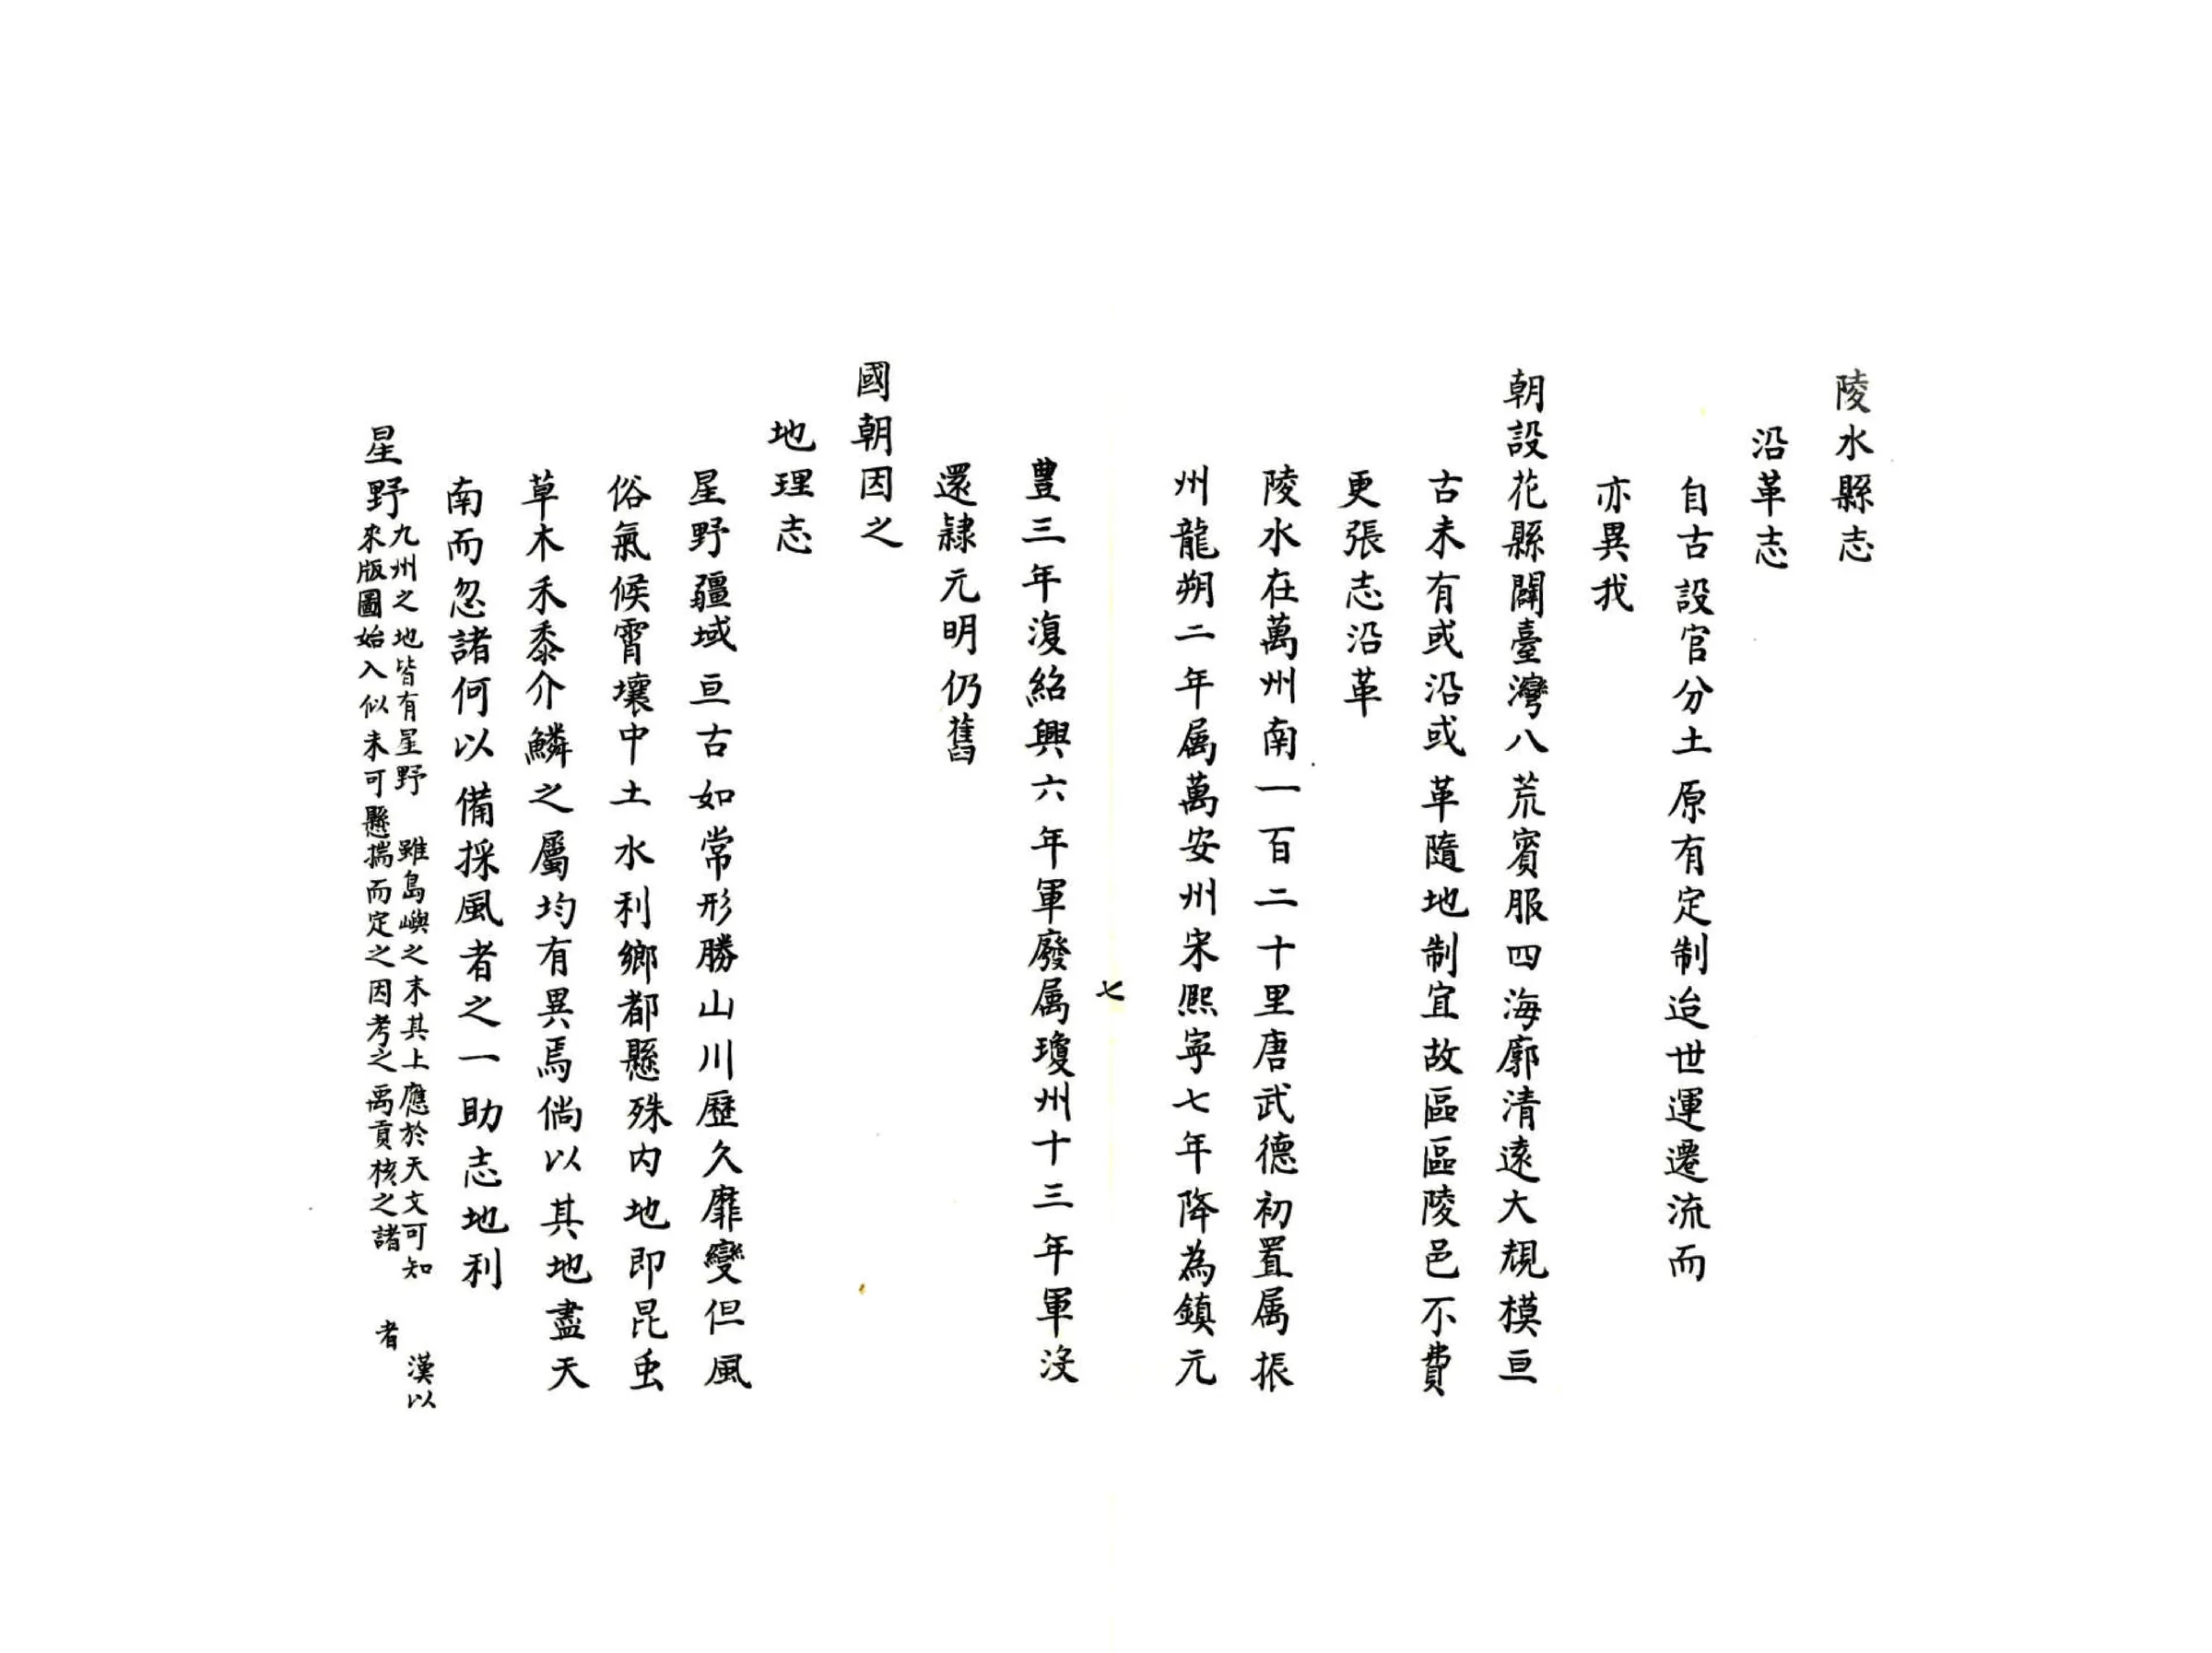 陵水縣志
沿革志
自古設官分土原有定制迨世運遷流而
亦異我
朝設花縣闢臺灣八荒賓服四海廓清遠大規模亘
古未有或沿或革隨地制宜故區區陵邑不費
更張志沿革
陵水在萬州南一百二十里唐武德初置属振
州龍朔二年属萬安州宋熈寧七年降為鎮元
七
豊三年復紹興六年軍廢属瓊州十三年軍沒
還隷元明仍舊
國朝因之
地理志
星野疆域亘古如常形勝山川歷久靡變但風
俗氣候霄壤中土水利鄉都懸殊内地即昆虫
草木禾黍介鱗之屬均有異焉倘以其地盡天
南而忽諸何以備採風者之一助志地利
星野
九州之地皆有星野雖島嶼之末其上應於天文可知漢以
來版圖始入似未可懸揣而定之因考之禹貢核之諸者